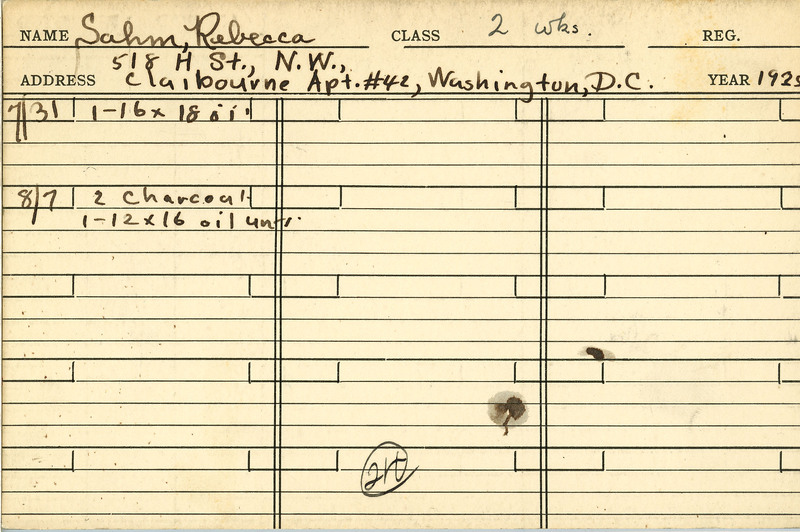 NAME Sahm, Rebecca CLASS 2 wks. REG.
518 H St., N.W.,
ADDRESS Claibourne Apt. #42, Washington, D.C. YEAR 192
7/31 1-16x 18 oil
8/7 2 Charcoal
1-12x16 oil